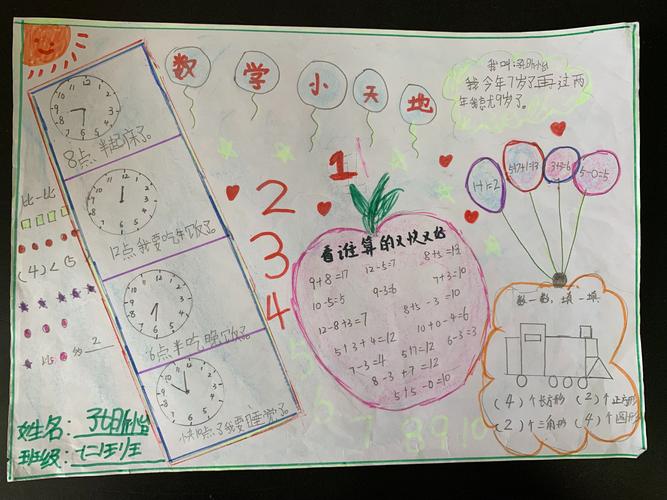 数学小天地
我今年7岁了再过两
年我就9岁了。
8点半起床了。
12点我要吃午饭了
6点半吃晚饭了
快10点了我要睡觉了
比一比
(4)<⑤
姓名:
班级:
1
2
3
4
看谁算的又快又好
9+8=17 12-5=7 8+5=13
10-5=5 9-3=6 7+3=10
12-8+3=7 8+5-3=10
5+3+4=12 10+0-4=6
7-3=4 5+7=12 6-3=3
8-3+7=12
5+5-0=10
1+1=2
5+7+1=13
3+3=6
5-0=5
数一数,填一填
(4)个长方形 (2)个正方形
(2)个三角形 (4)个圆形
8 9 10